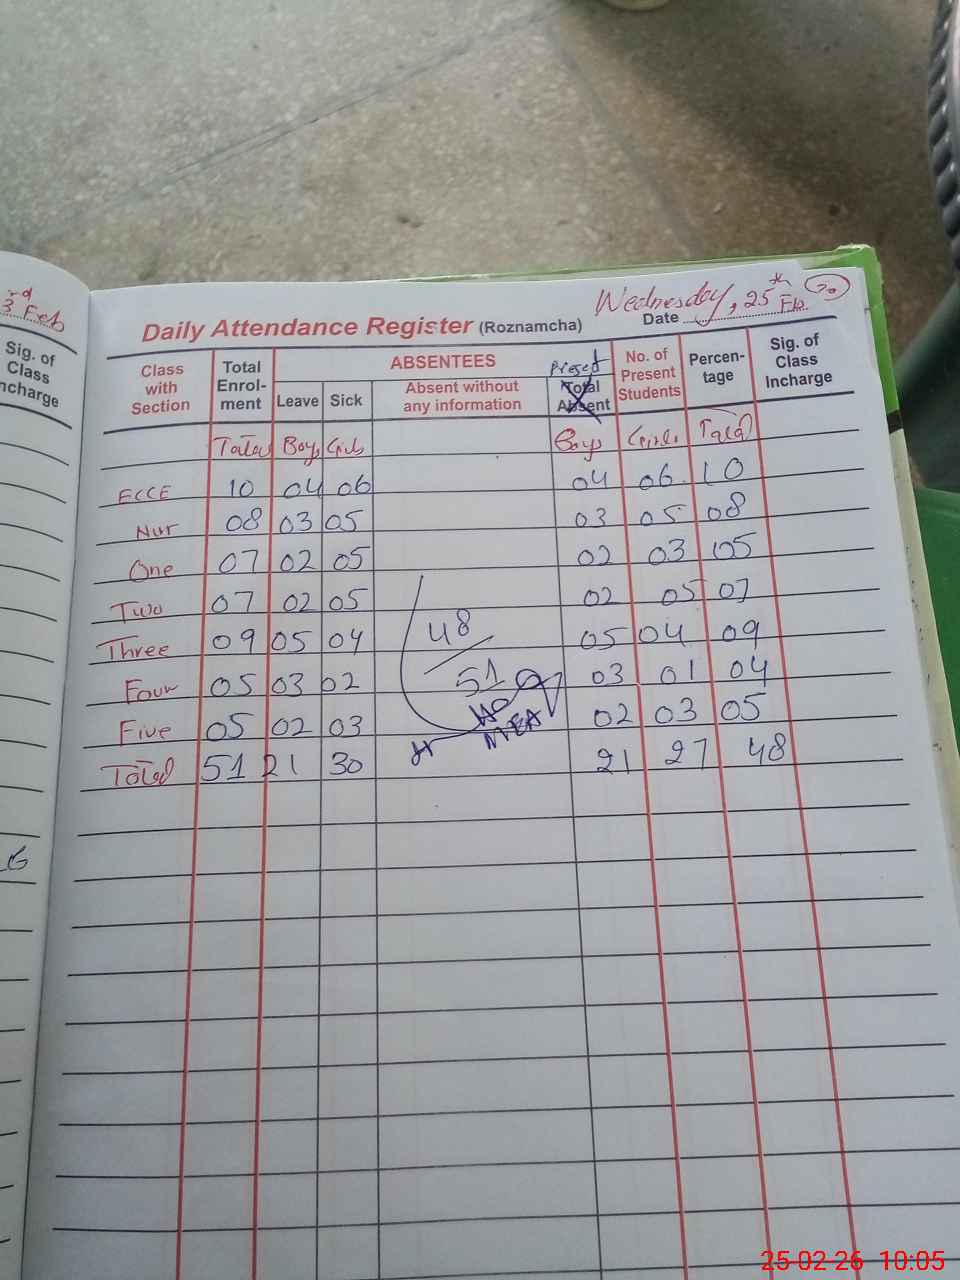 3rd Feb
Sig. of
Class
ncharge
G
Wednesday, 25th Feb
Daily Attendance Register (Roznamcha) Date
Class
with
Section
Total
Enrol-
ment
ABSENTEES
Leave
Sick
Absent without
any information
Present
Total
Absent
No. of
Present
Students
Percen-
tage
Sig. of
Class
Incharge
Total Boys Girls Boys Girls Total
ECCE 10 04 06 04 06 10
Nur 08 03 05 03 05 08
One 07 02 05 02 03 05
Two 07 02 05 02 05 07
Three 09 05 04 05 04 09
Four 05 03 02 03 01 04
Five 05 02 03 02 03 05
Total 51 21 30 21 27 48
48
51
MEA
25-02-26 10:05